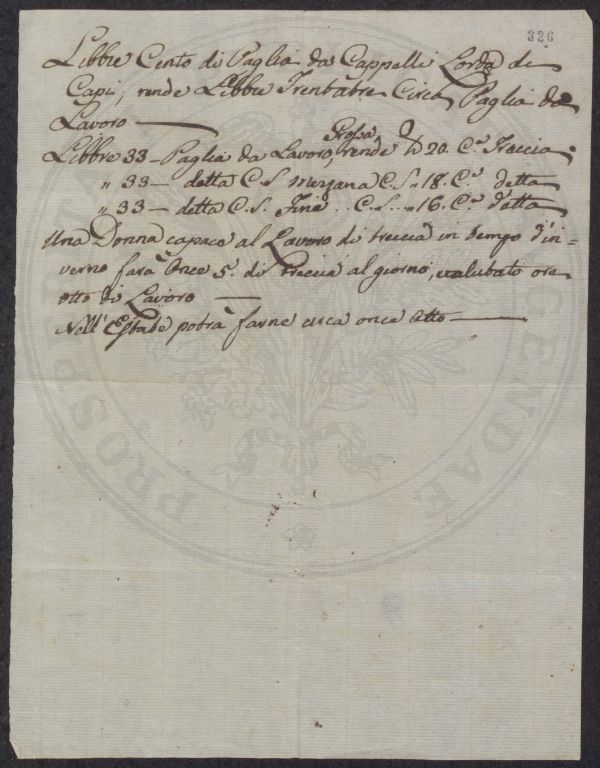 326
Libbre Cento di Paglia da Cappelli Lorda di
Capi, rende Libbre Trentatre Circa Paglia da
Lavoro
Grossa
Libbre 33 - Paglia da Lavoro, rende lb 20. Ca. Treccia
" 33 - detta C. S. Mezzana C. S. " 18. Ca. detta
" 33 - detta C. S. Fine .. C. S. " 16. Ca. detta
Una Donna capace al Lavoro di treccia in tempo d'in-
verno farà Once 5. di treccia al giorno, valutato ore
otto di Lavoro
Nell' Estate potrà farne circa once otto
PROSPERITATI AUGENDAE